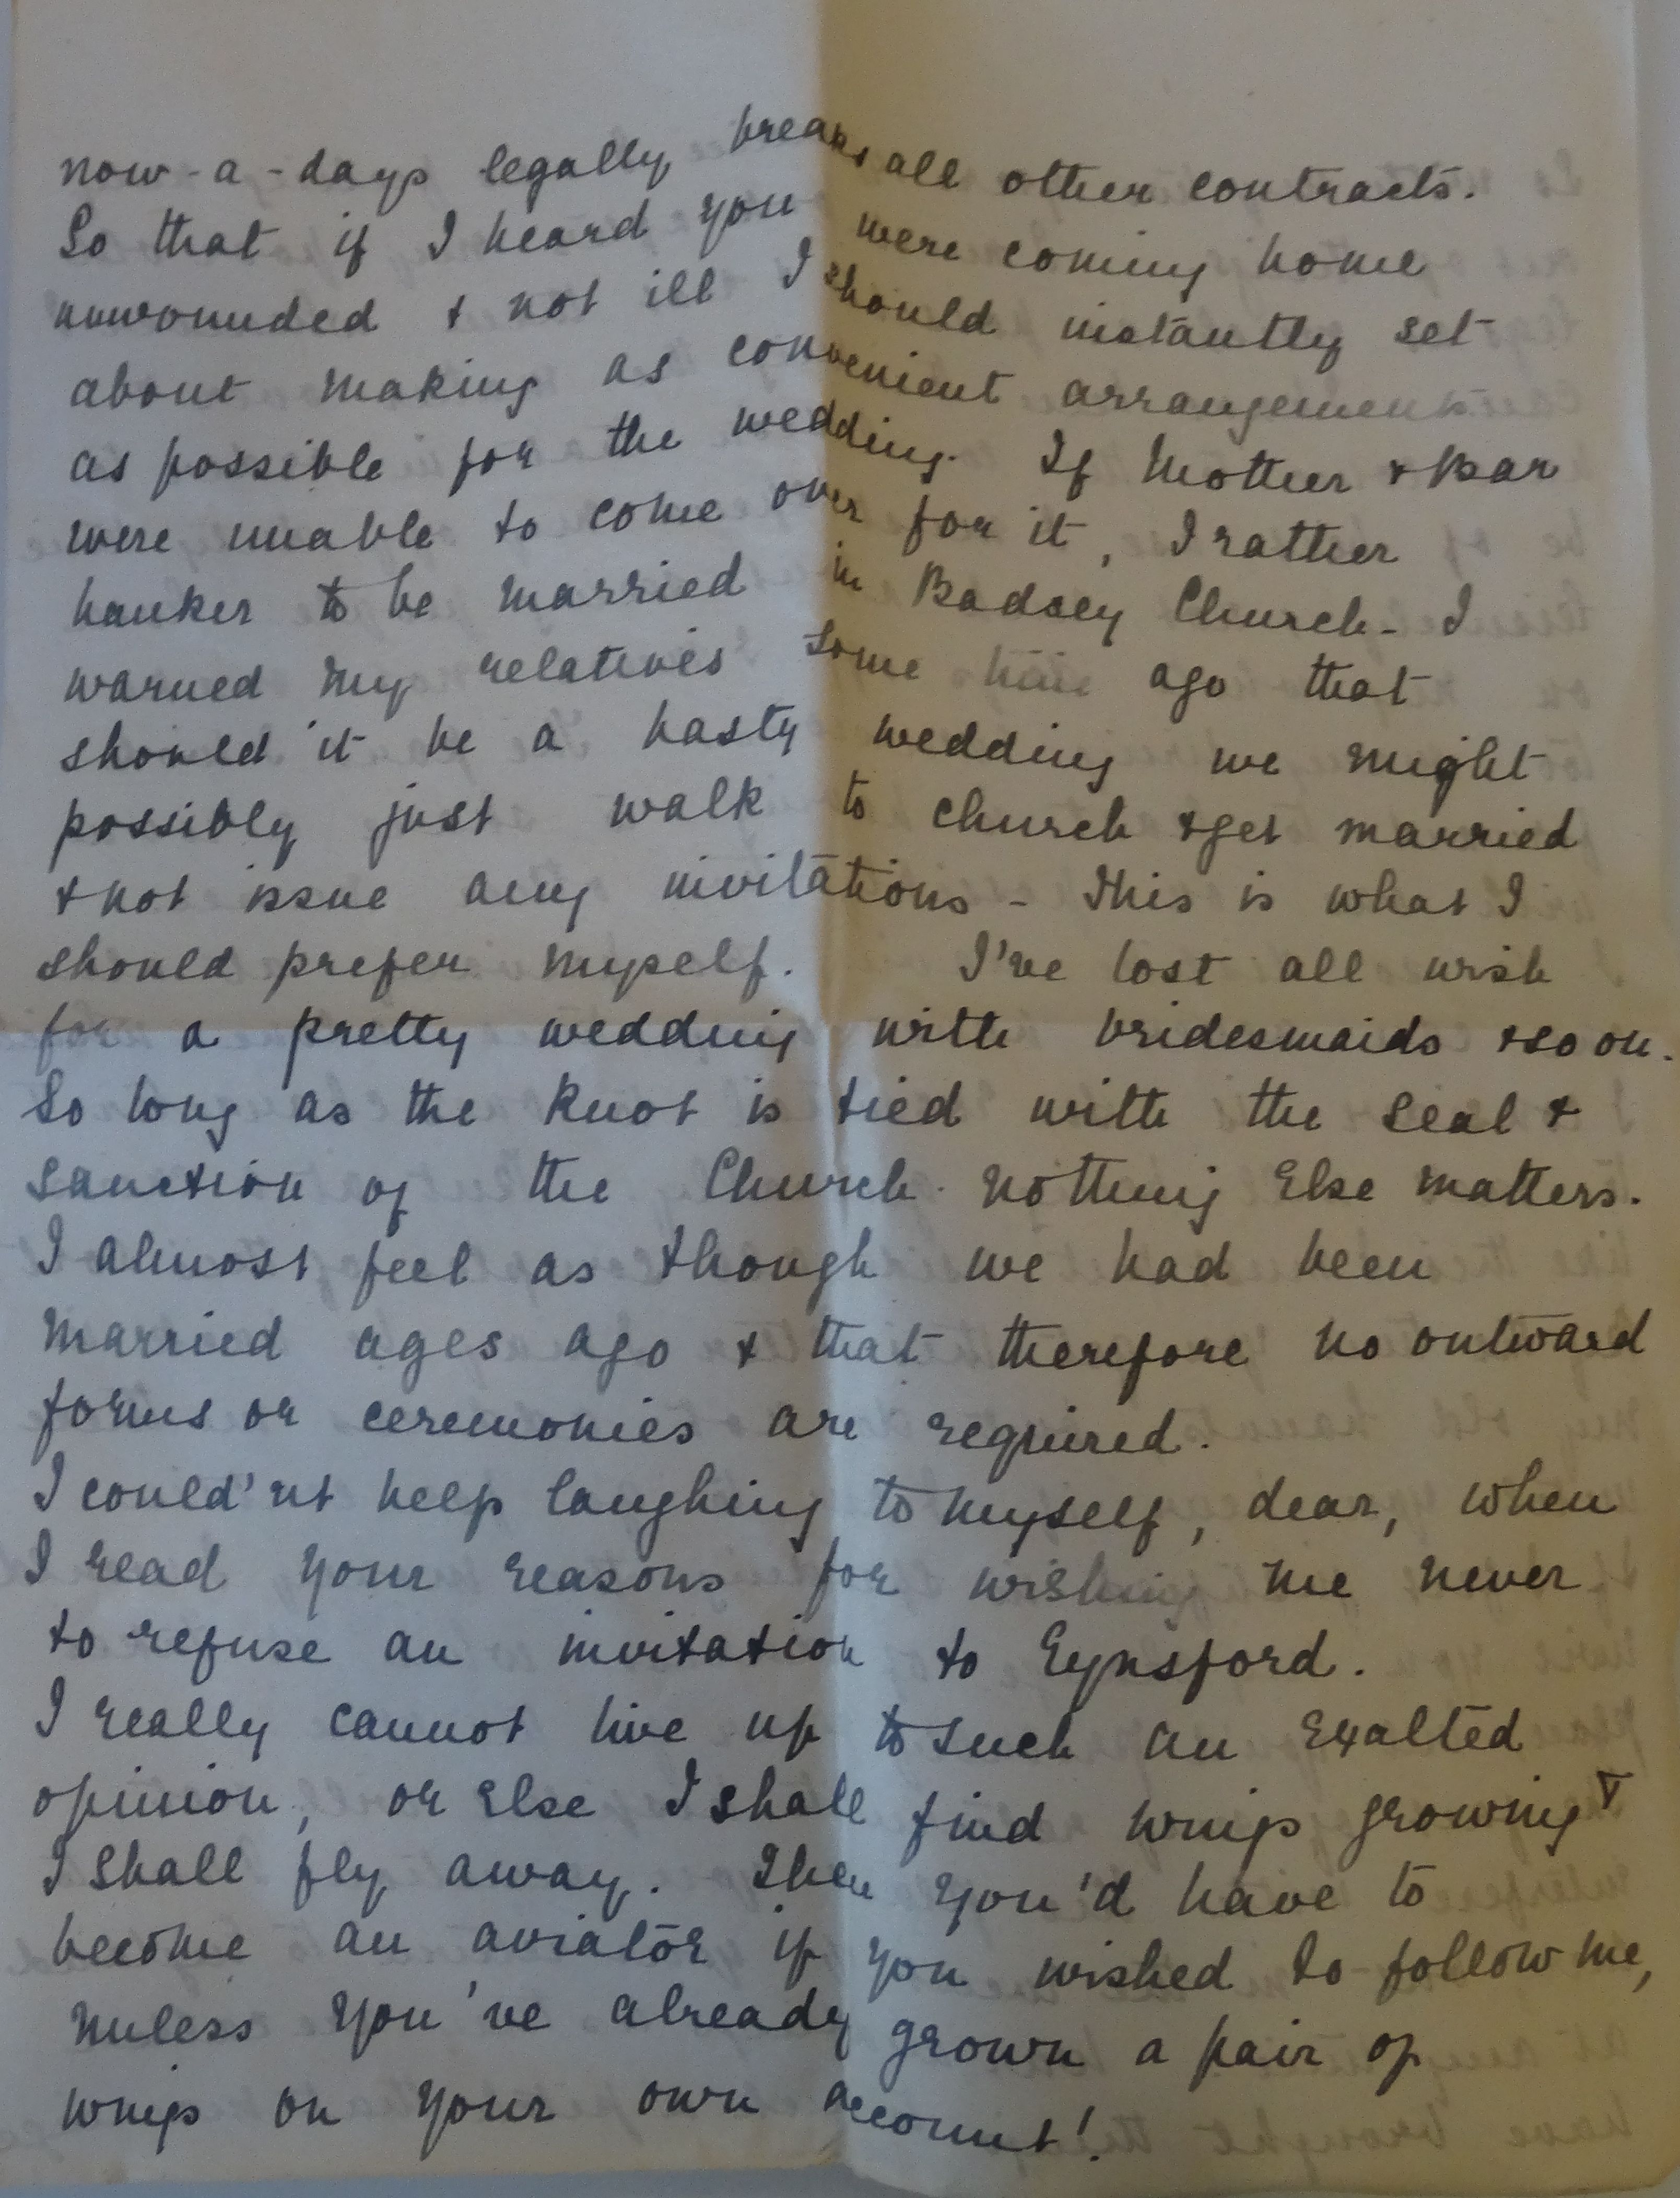 now-a-days legally breaks all other contracts.
So that if I heard you were coming home
unwounded & not ill I should instantly set
about making as convenient arrangements
as possible for the wedding. If Mother & Bar
were unable to come over for it, I rather
hanker to be married in Badsey Church - I
warned my relatives some time ago that
should it be a hasty wedding we might
possibly just walk to church & get married
& not issue any invitations - This is what I
should prefer myself. I've lost all wish
for a pretty wedding with bridesmaids & so on.
So long as the knot is tied with the seal &
sanction of the Church nothing else matters.
I almost feel as though we had been
married ages ago & that therefore no outward
forms or ceremonies are required.
I could'nt help laughing to myself, dear, when
I read your reasons for wishing me never
to refuse an invitation to Eynsford.
I really cannot live up to such an exalted
opinion, or else I shall find wings growing &
I shall fly away. Then you'd have to
become an aviator if you wished to follow me,
unless you've already grown a pair of
wings on your own account!